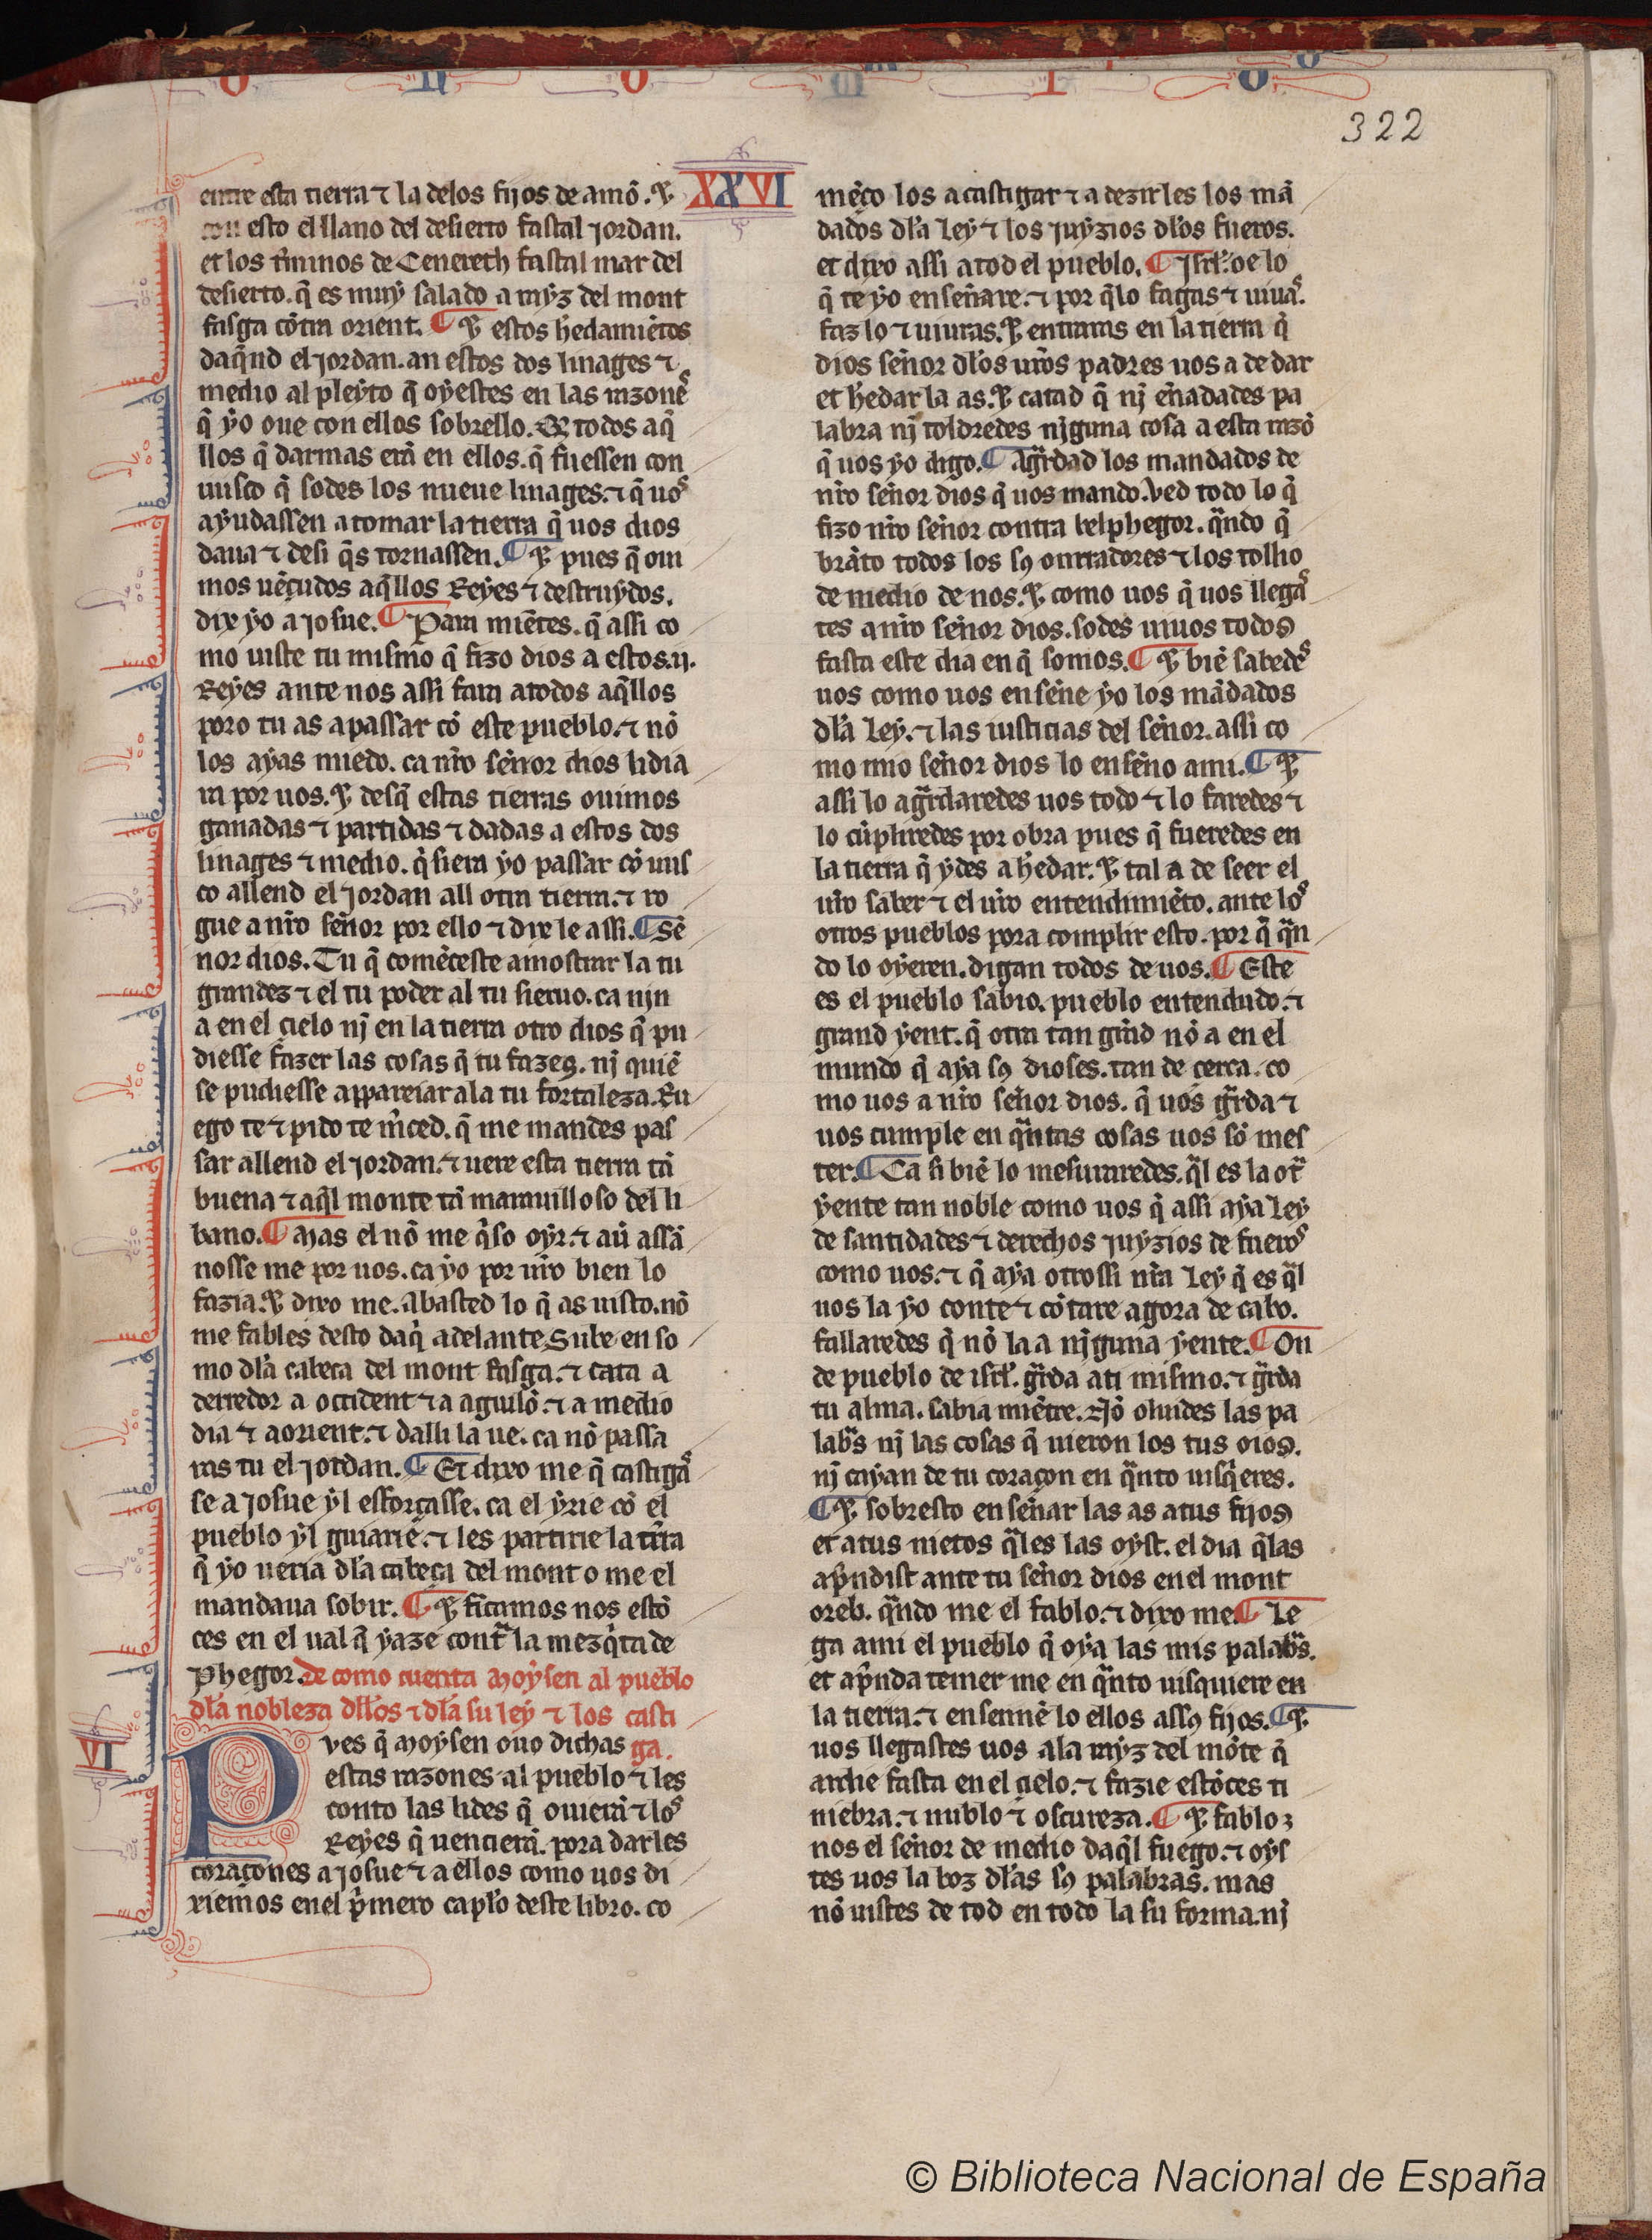 O N O M I O
322
XXVI
entre esta tierra ⁊ la delos fijos de amõ. ⁊
con esto el llano del desierto fastal jordan.
et los t̃minos de Cenereth fastal mar del
desierto. q̃ es muy salado a rayz del mont
fasga cõtra orient. ¶ ⁊ estos h̃edamiẽtos
daq̃nd el jordan. an estos dos linages ⁊
medio al pleyto q̃ oyestes en las razonẽˢ
q̃ yo oue con ellos sobrello. Et todos aq̃
llos q̃ darmas erã en ellos. q̃ fuessen con
uusco q̃ sodes los nueue linages. ⁊ q̃ uoˢ
ayudassen a tomar la tierra q̃ uos dios
daua ⁊ desi q̃s tornassen. ¶ ⁊ pues q̃ oui
mos uẽçudos aq̃llos Reyes ⁊ destruydos.
dix yo a josue. ¶ Para miẽtes. q̃ assi co
mo uiste tu mismo q̃ fizo dios a estos .ij.
Reyes ante nos assi fara atodos aq̃llos
poro tu as apassar cõ este pueblo. ⁊ nõ
los ayas miedo. ca nr̃o sennor dios lidia
ra por uos. ⁊ desq̃ estas tierras ouimos
ganadas ⁊ partidas ⁊ dadas a estos dos
linages ⁊ medio. q̃siera yo passar cõ uus
co allend el jordan all otra tierra. ⁊ ro
gue a nr̃o señor por ello ⁊ dixle assi. ¶ Sẽ
nor dios. Tu q̃ comẽçeste amostrar la tu
grandez ⁊ el tu poder al tu sieruo. ca nin
a en el çielo nĩ en la tierra otro dios q̃ pu
diesse fazer las cosas q̃ tu fazes. nĩ quiẽ
se pudiesse appareiar ala tu fortaleza. Ru
ego te ⁊ pido te m̃ced. q̃ me mandes pas
sar allend el jordan. ⁊ uere esta tierra tã
buena ⁊ aq̃l monte tã marauilloso del li
bano. ¶ Mas el nõ me q̃so oyr. ⁊ aũ assã
nosse me por uos. ca yo por ur̃o bien lo
fazia. ⁊ dixo me. Abasted lo q̃ as uisto. nõ
me fables desto daq̃ adelante. Sube en so
mo dl̃a cabeça del mont fasga. ⁊ cata a
derredor a occident ⁊ a aguilõ. ⁊ a medio
dia ⁊ aorient. ⁊ dalli la ue. ca nõ passa
ras tu el jordan. ¶ Et dixo me q̃ castigaˢ
se a josue yl esforçasse. ca el yrie cõ el
pueblo yl guiarie. ⁊ les partirie la tr̃ra
q̃ yo ueria dl̃a cabeça del mont o me el
mandaua sobir. ¶ ⁊ fincamos nos estõ
ces en el ual q̃ yaze contra la mezq̃ta de
Phegor. De como cuenta Moysen al pueblo
dl̃a nobleza dll̃os ⁊ dl̃a su ley ⁊ los casti
VI
Pves q̃ Moysen ouo dichas ga.
estas razones al pueblo ⁊ les
conto las lides q̃ ouierã ⁊ loˢ
Reyes q̃ uençierã. pora darles
coraçones a josue ⁊ a ellos como uos di
xiemos enel p̃mero capl̃o deste libro. co
mẽço los a castigar ⁊ a dezirles los mã
dados dl̃a Ley ⁊ los juyzios dl̃os fueros.
et dixo assi a tod el pueblo. ¶ Isrl̃. oe lo
q̃ te yo enseñare. ⁊ por q̃lo fagas ⁊ uiuaˢ.
faz lo ⁊ uiuras. ⁊ entraras en la tierra q̃
dios señor dl̃os ur̃os padres uos a de dar
et h̃edar la as. ⁊ catad q̃ nĩ eñadades pa
labra nĩ toldredes nĩguna cosa a esta razõ
q̃ uos yo digo. ¶ Agr̃dad los mandados de
nr̃o señor dios q̃ uos mando. Ved todo lo q̃
fizo nr̃o señor contra belphegor. q̃ndo q̃
brãto todos los sꝯ onrradores ⁊ los tolho
de medio de nos. ⁊ como uos q̃ uos llegaˢ
tes a nr̃o señor dios. sodes uiuos todos
fasta este dia en q̃ somos. ¶ ⁊ biẽ sabedeˢ
uos como uos enseñe yo los mãdados
dl̃a Ley. ⁊ las iusticias del señor. assi co
mo mio señor dios lo enseño ami. ¶ ⁊
assi lo agr̃daredes uos todo ⁊ lo faredes ⁊
lo cũpliredes por obra pues q̃ fueredes en
la tierra q̃ ydes a h̃edar. ⁊ tal a de seer el
ur̃o saber ⁊ el ur̃o entendimiẽto. ante loˢ
otros pueblos pora complir esto. por q̃ q̃n
do lo oyeren. digan todos de uos. ¶ Este
es el pueblo sabio. pueblo entendudo. ⁊
grand yent. q̃ otra tan grãd nõ a en el
mundo q̃ aya sꝯ dioses. tan de cerca. co
mo uos a nr̃o señor dios. q̃ uos gr̃da ⁊
uos cumple en q̃ntas cosas uos sõ mes
ter. ¶ Ca si biẽ lo mesuraredes. q̃l es la otr̃
yente tan noble como uos q̃ assi aya Ley
de santidades ⁊ derechos juyzios de fueroˢ
como uos. ⁊ q̃ aya otrossi nr̃a Ley q̃ es q̃l
uos la yo conte ⁊ cõtare agora de cabo.
fallaredes q̃ nõ la a nĩguna yente. ¶ On
de pueblo de isrl̃. gr̃da ati mismo. ⁊ gr̃da
tu alma. sabia miẽtre. Nõ oluides las pa
labr̃s nĩ las cosas q̃ uieron los tus oios.
nĩ cayan de tu coraçon en q̃nto uisq̃eres.
¶ ⁊ sobresto enseñar las as atus fijos
et atus nietos q̃les las oyst. el dia q̃las
ap̃ndist ante tu señor dios enel mont
oreb. q̃ndo me el fablo. ⁊ dixo me. ¶ Le
ga ami el pueblo q̃ oya las mis palabr̃s.
et ap̃nda temer me en q̃nto uisquiere en
la tierra. ⁊ ensennẽ lo ellos assꝯ fijos. ¶ ⁊
uos llegastes uos ala rayz del mõte q̃
ardie fasta en el çielo. ⁊ fazie estõces ti
niebra. ⁊ nublo ⁊ oscureza. ¶ ⁊ fablo
nos el señor de medio daq̃l fuego. ⁊ oys
tes uos la boz dl̃as sꝯ palabras. mas
nõ uistes de tod en todo la su forma. nĩ
© Biblioteca Nacional de España